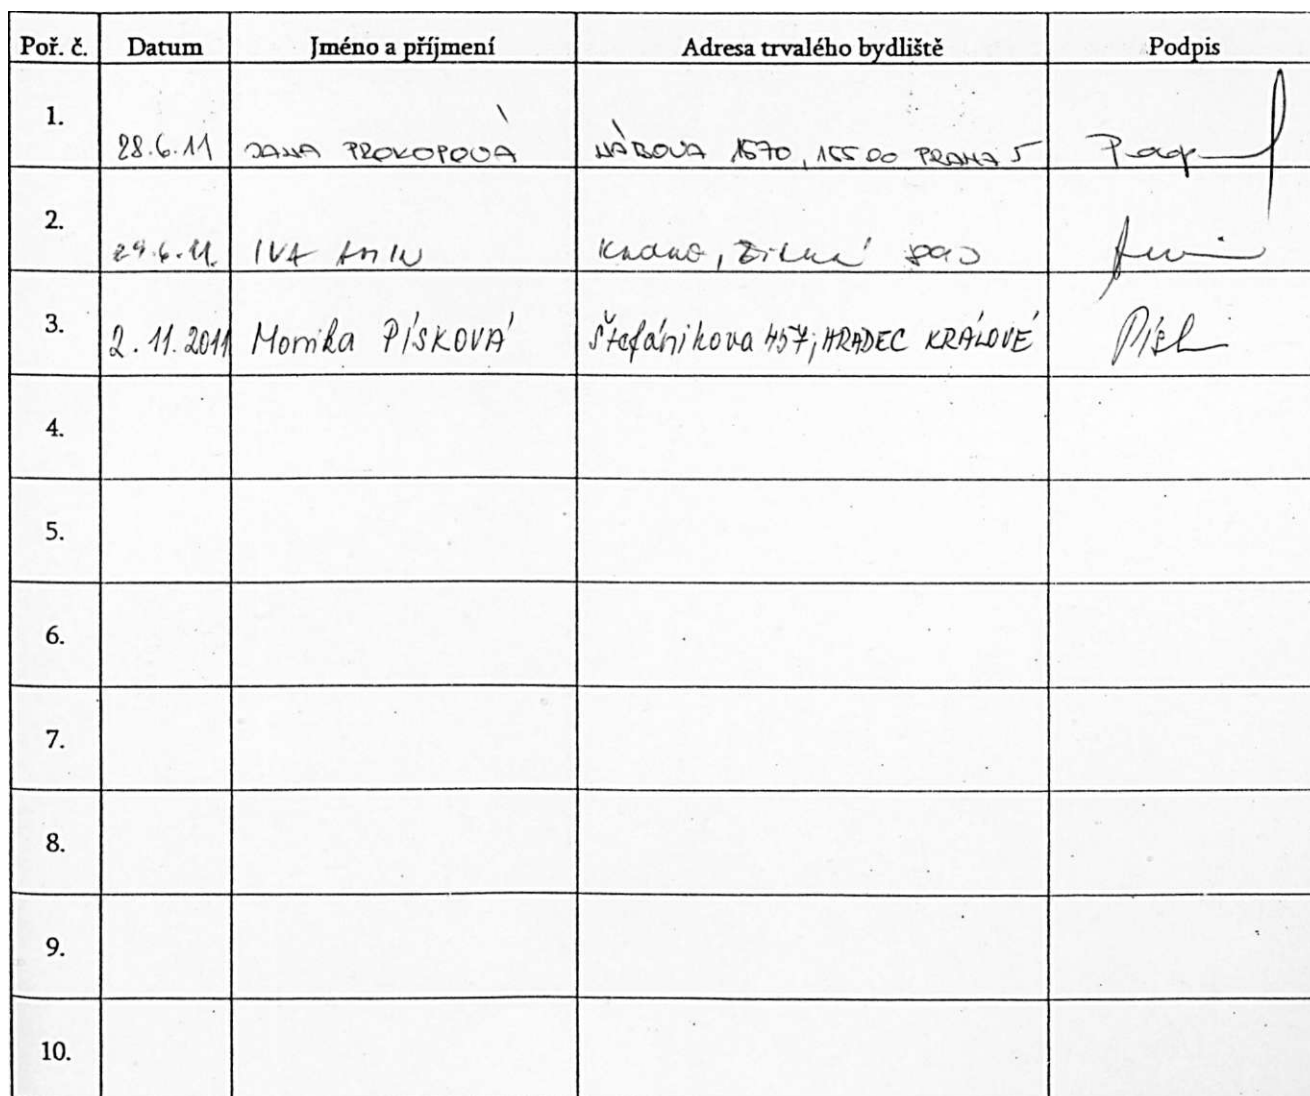 Poř. č. Datum Jméno a příjmení Adresa trvalého bydliště Podpis
1. 28.6.11 JANA PROKOPOVÁ 1570, 155 00 PRAHA 5
2. 29.6.11. IVA
3. 2.11.2011 Monika PÍSKOVÁ Štefánikova 457; HRADEC KRÁLOVÉ
4.
5.
6.
7.
8.
9.
10.